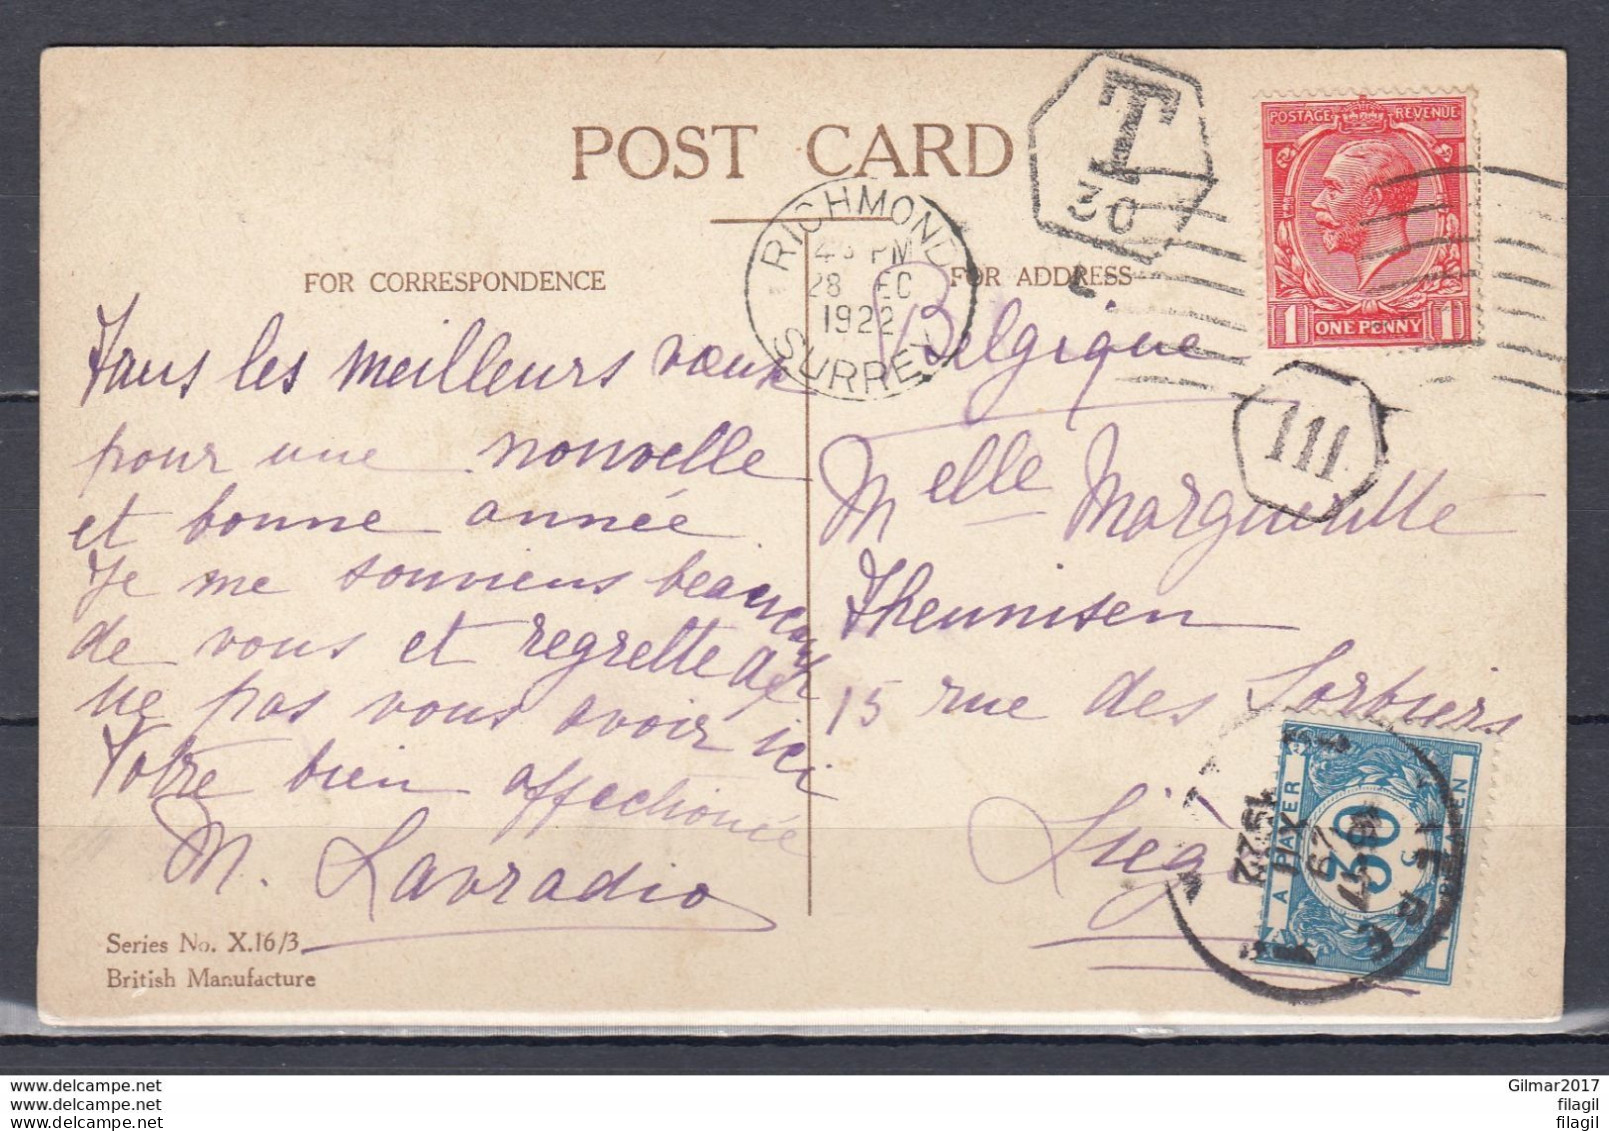 POST CARD
T
30
POSTAGE REVENUE
1 ONE PENNY 1
RICHMOND
PM
28 EC
1922
SURREY
FOR CORRESPONDENCE
FOR ADDRESS
Tous les meilleurs voeux
pour une nouvelle
et bonne année
Je me souviens beaucoup
de vous et regrette de
ne pas vous avoir ici
Votre bien affectionnée
M. Lavradio
Belgique
111
Melle Marguerite
Theunisen
15 rue des Sorbiers
Liège
A PAYER
30
1922
XII
29
Series No. X.16/3
British Manufacture
www.delcampe.net
www.delcampe.net
www.delcampe.net
Gilmar2017
filagil
filagil